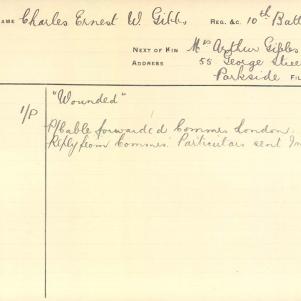 NAME Charles Ernest W Gibbs REG. &C. 10th Batt
NEXT OF KIN Mrs Arthur Gibbs
ADDRESS 55 George Stree
Parkside FIL
"Wounded"
1/P P/Cable forwarded Commrs London.
Reply from Commrs. Particulars sent In